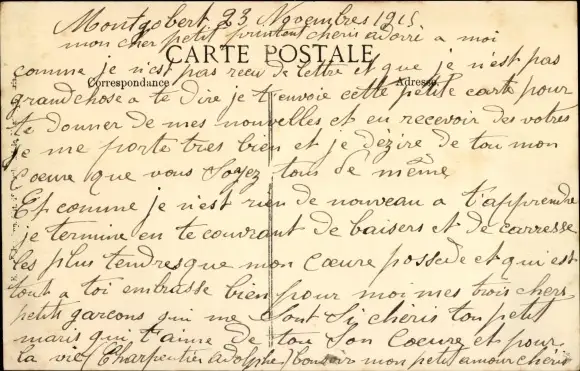 Montgobert 23 Novembres 1915
mon cher petit printent cheris adorré a moi
CARTE POSTALE
comme je n'est pas recu de lettre et que je n'est pas
Correspondance Adresse
grandchose a te dire je t'envoie cette petite carte pour
te donner de mes nouvelles et en recevoir des votres
je me porte tres bien et je dézire de tou mon
Coeure que vous Soyez tous de même
Et comme je n'est rien de nouveau a t'apprendre
je termine en te couvrant de baisers et de carresse
les plus tendres que mon Coeure possede et qui est
tout a toi embrasse bien pour moi mes trois chers
petits garcons qui me Sont Si cheris ton petit
maris qui t'aime de tou Son Coeure et pour
la vie (Charpentier adolphe) bonsoir mon petit amour cheris